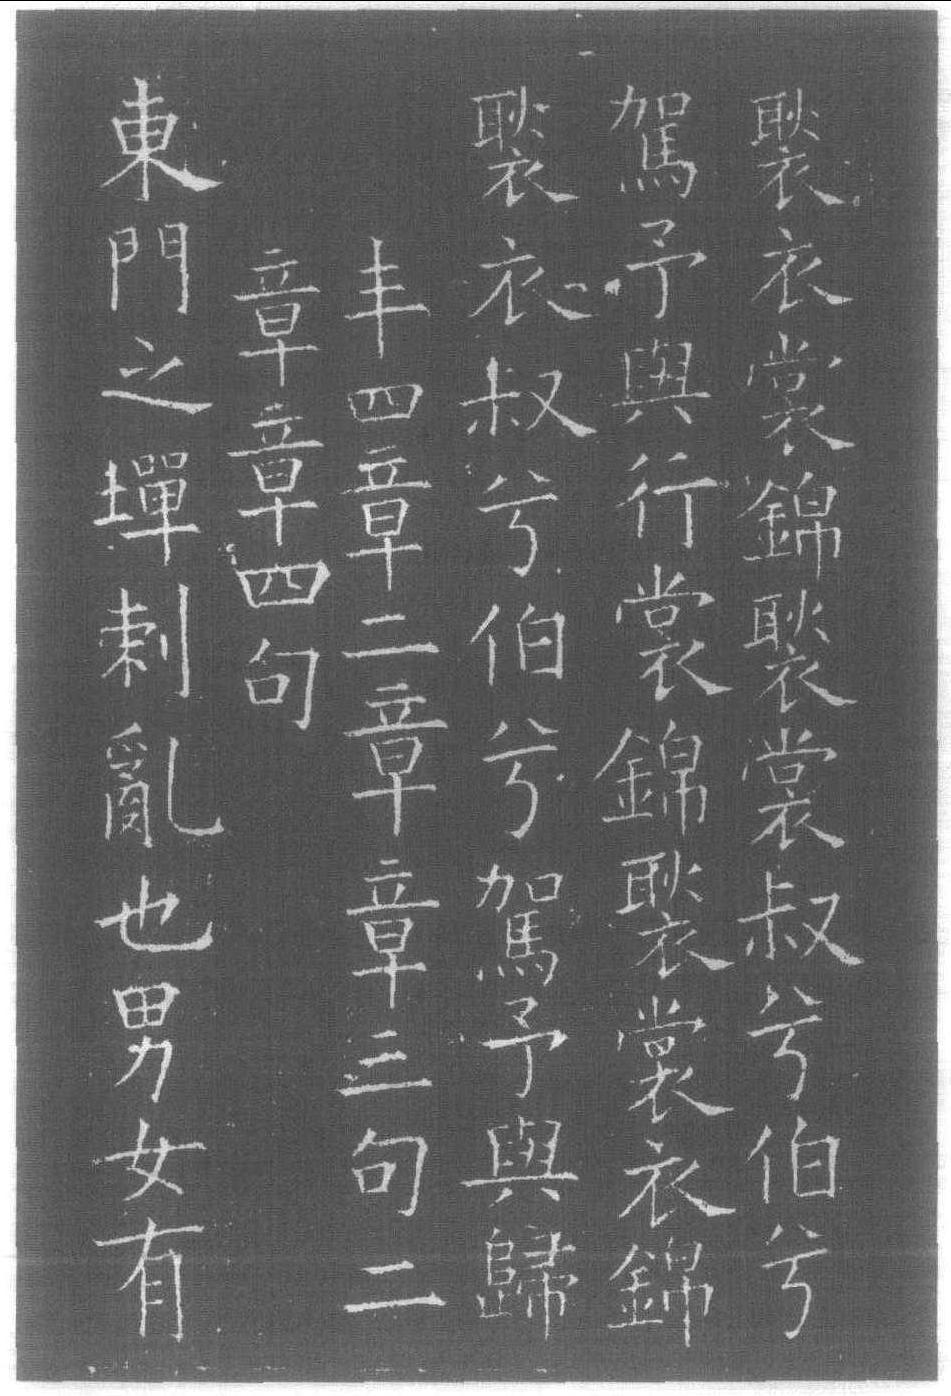 褧衣裳錦褧裳叔兮伯兮
駕予與行裳錦褧裳衣錦
褧衣叔兮伯兮駕予與歸
丰四章二章章三句二
章章四句
東門之墠刺亂也男女有